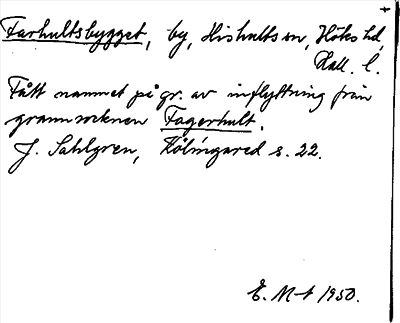 Farhultsbygget, by, Hishults sn, Höks hd,
Hall. l.
Fått namnet på gr. av inflyttning från
grannsocknen Fagerhult.
J. Sahlgren, Kölingared s. 22.
E. M-t 1950.